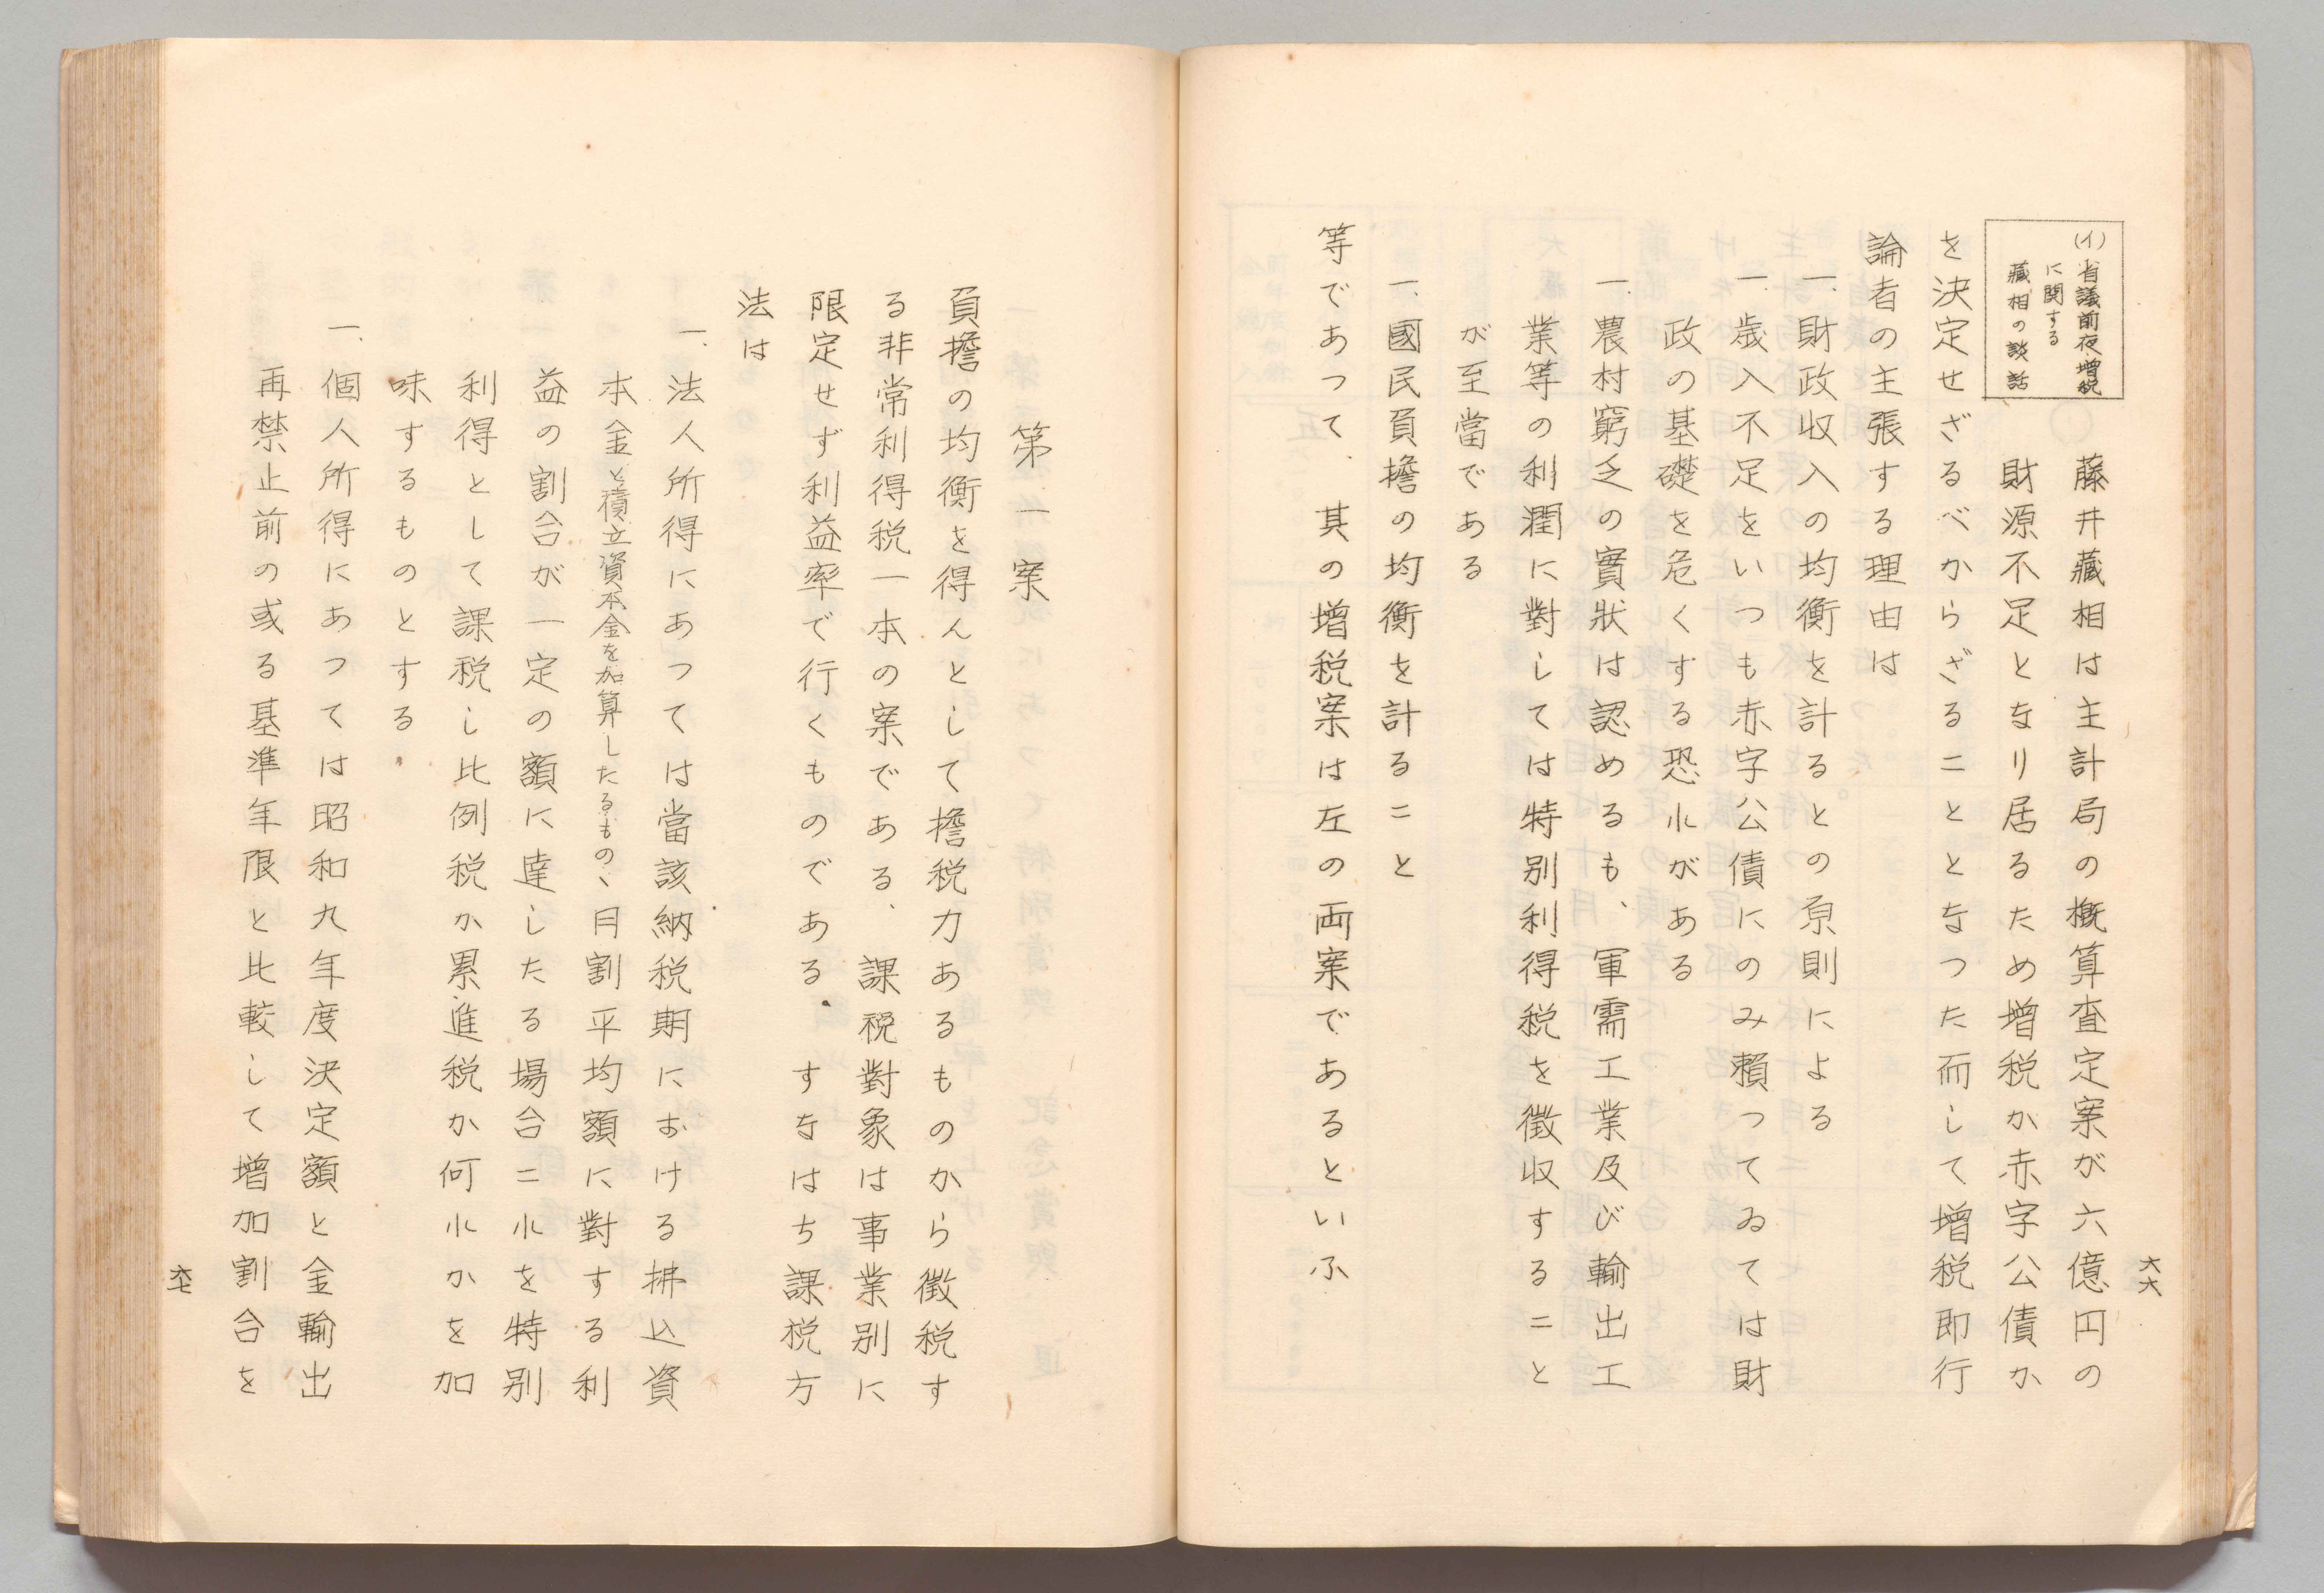 六六
(イ)省議前夜増税
に関する
藏相の談話
藤井藏相は主計局の概算査定案が六億円の
財源不足となり居るため増税か赤字公債か
を決定せざるべからざることとなつた而して増税即行
論者の主張する理由は
一、財政収入の均衡を計るとの原則による
一、歳入不足をいつも赤字公債にのみ頼つてゐては財
政の基礎を危くする恐れがある
一、農村窮乏の實狀は認めるも、軍需工業及び輸出工
業等の利潤に對しては特別利得税を徴収すること
が至當である
一、國民負擔の均衡を計ること
等であつて、其の増税案は左の両案であるといふ
第一案
負擔の均衡を得んとして擔税力あるものから徴税す
る非常利得税一本の案である、課税對象は事業別に
限定せず利益率で行くものである。すなはち課税方
法は
一、法人所得にあつては當該納税期における拂込資
本金と積立資本金を加算したるものゝ月割平均額に對する利
益の割合が一定の額に達したる場合これを特別
利得として課税し比例税か累進税か何れかを加
味するものとする。
一、個人所得にあつては昭和九年度決定額と金輸出
再禁止前の或る基準年限と比較して増加割合を
六七